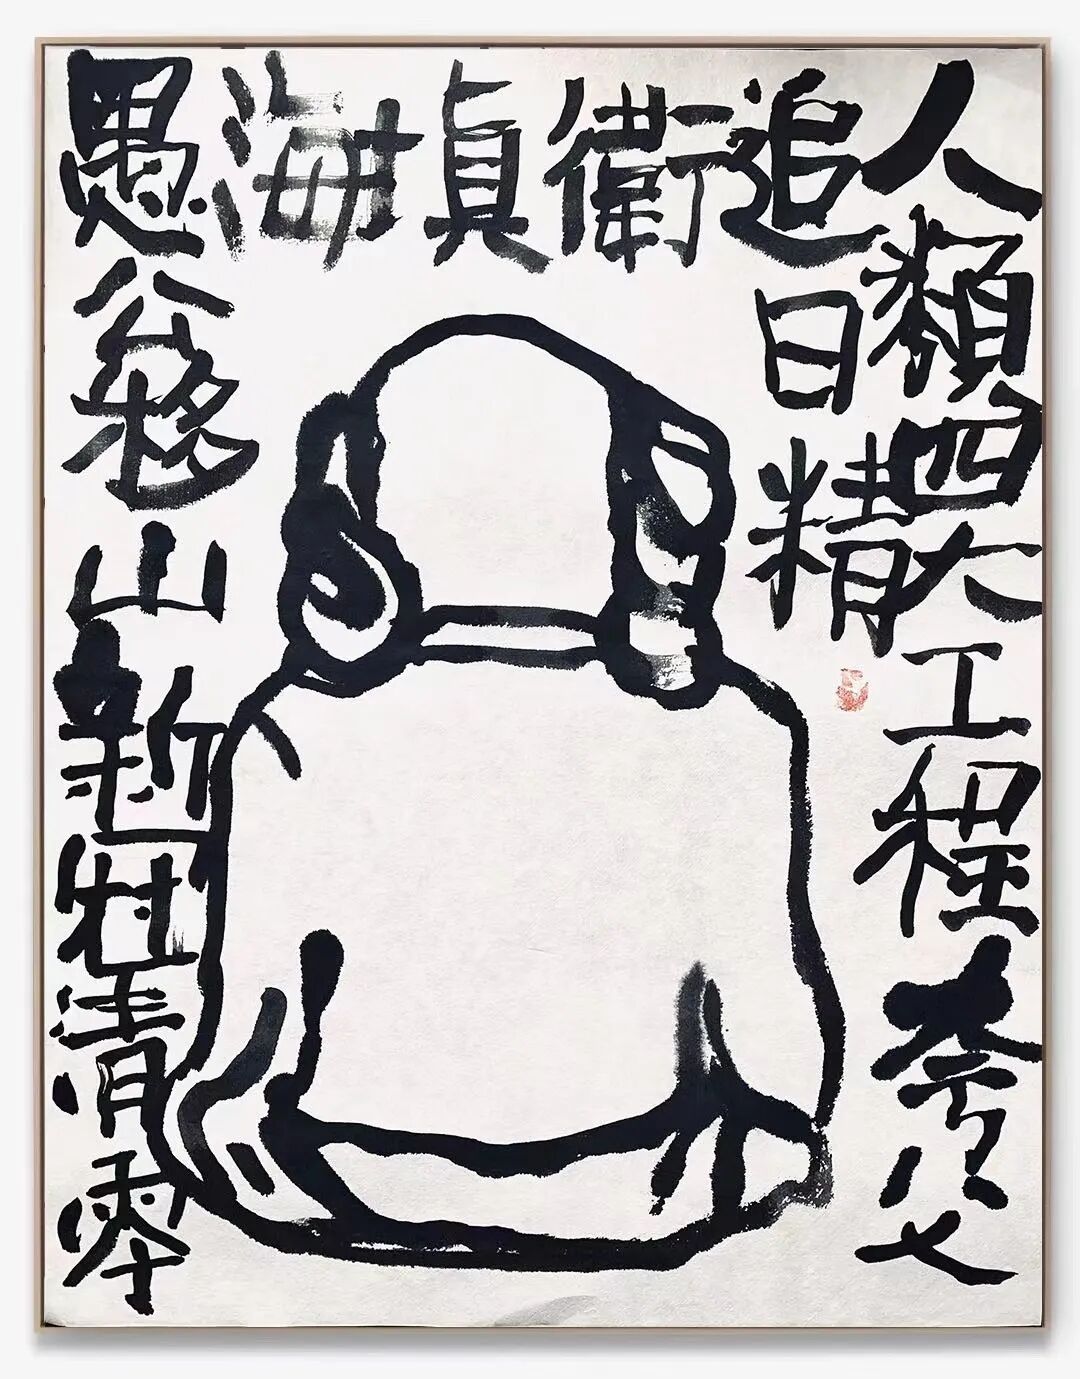 人類四大工程夸父
追日精
衛
填
海
愚公移山新冠清零